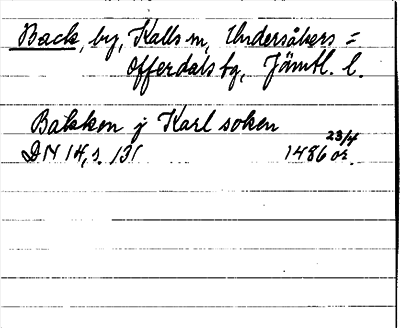 Back, by, Kalls sn, Undersåkers =
Offerdals tg, Jämtl. l.
Bakken j Karl soken
DN 14, s. 131 1486 23/4 or.